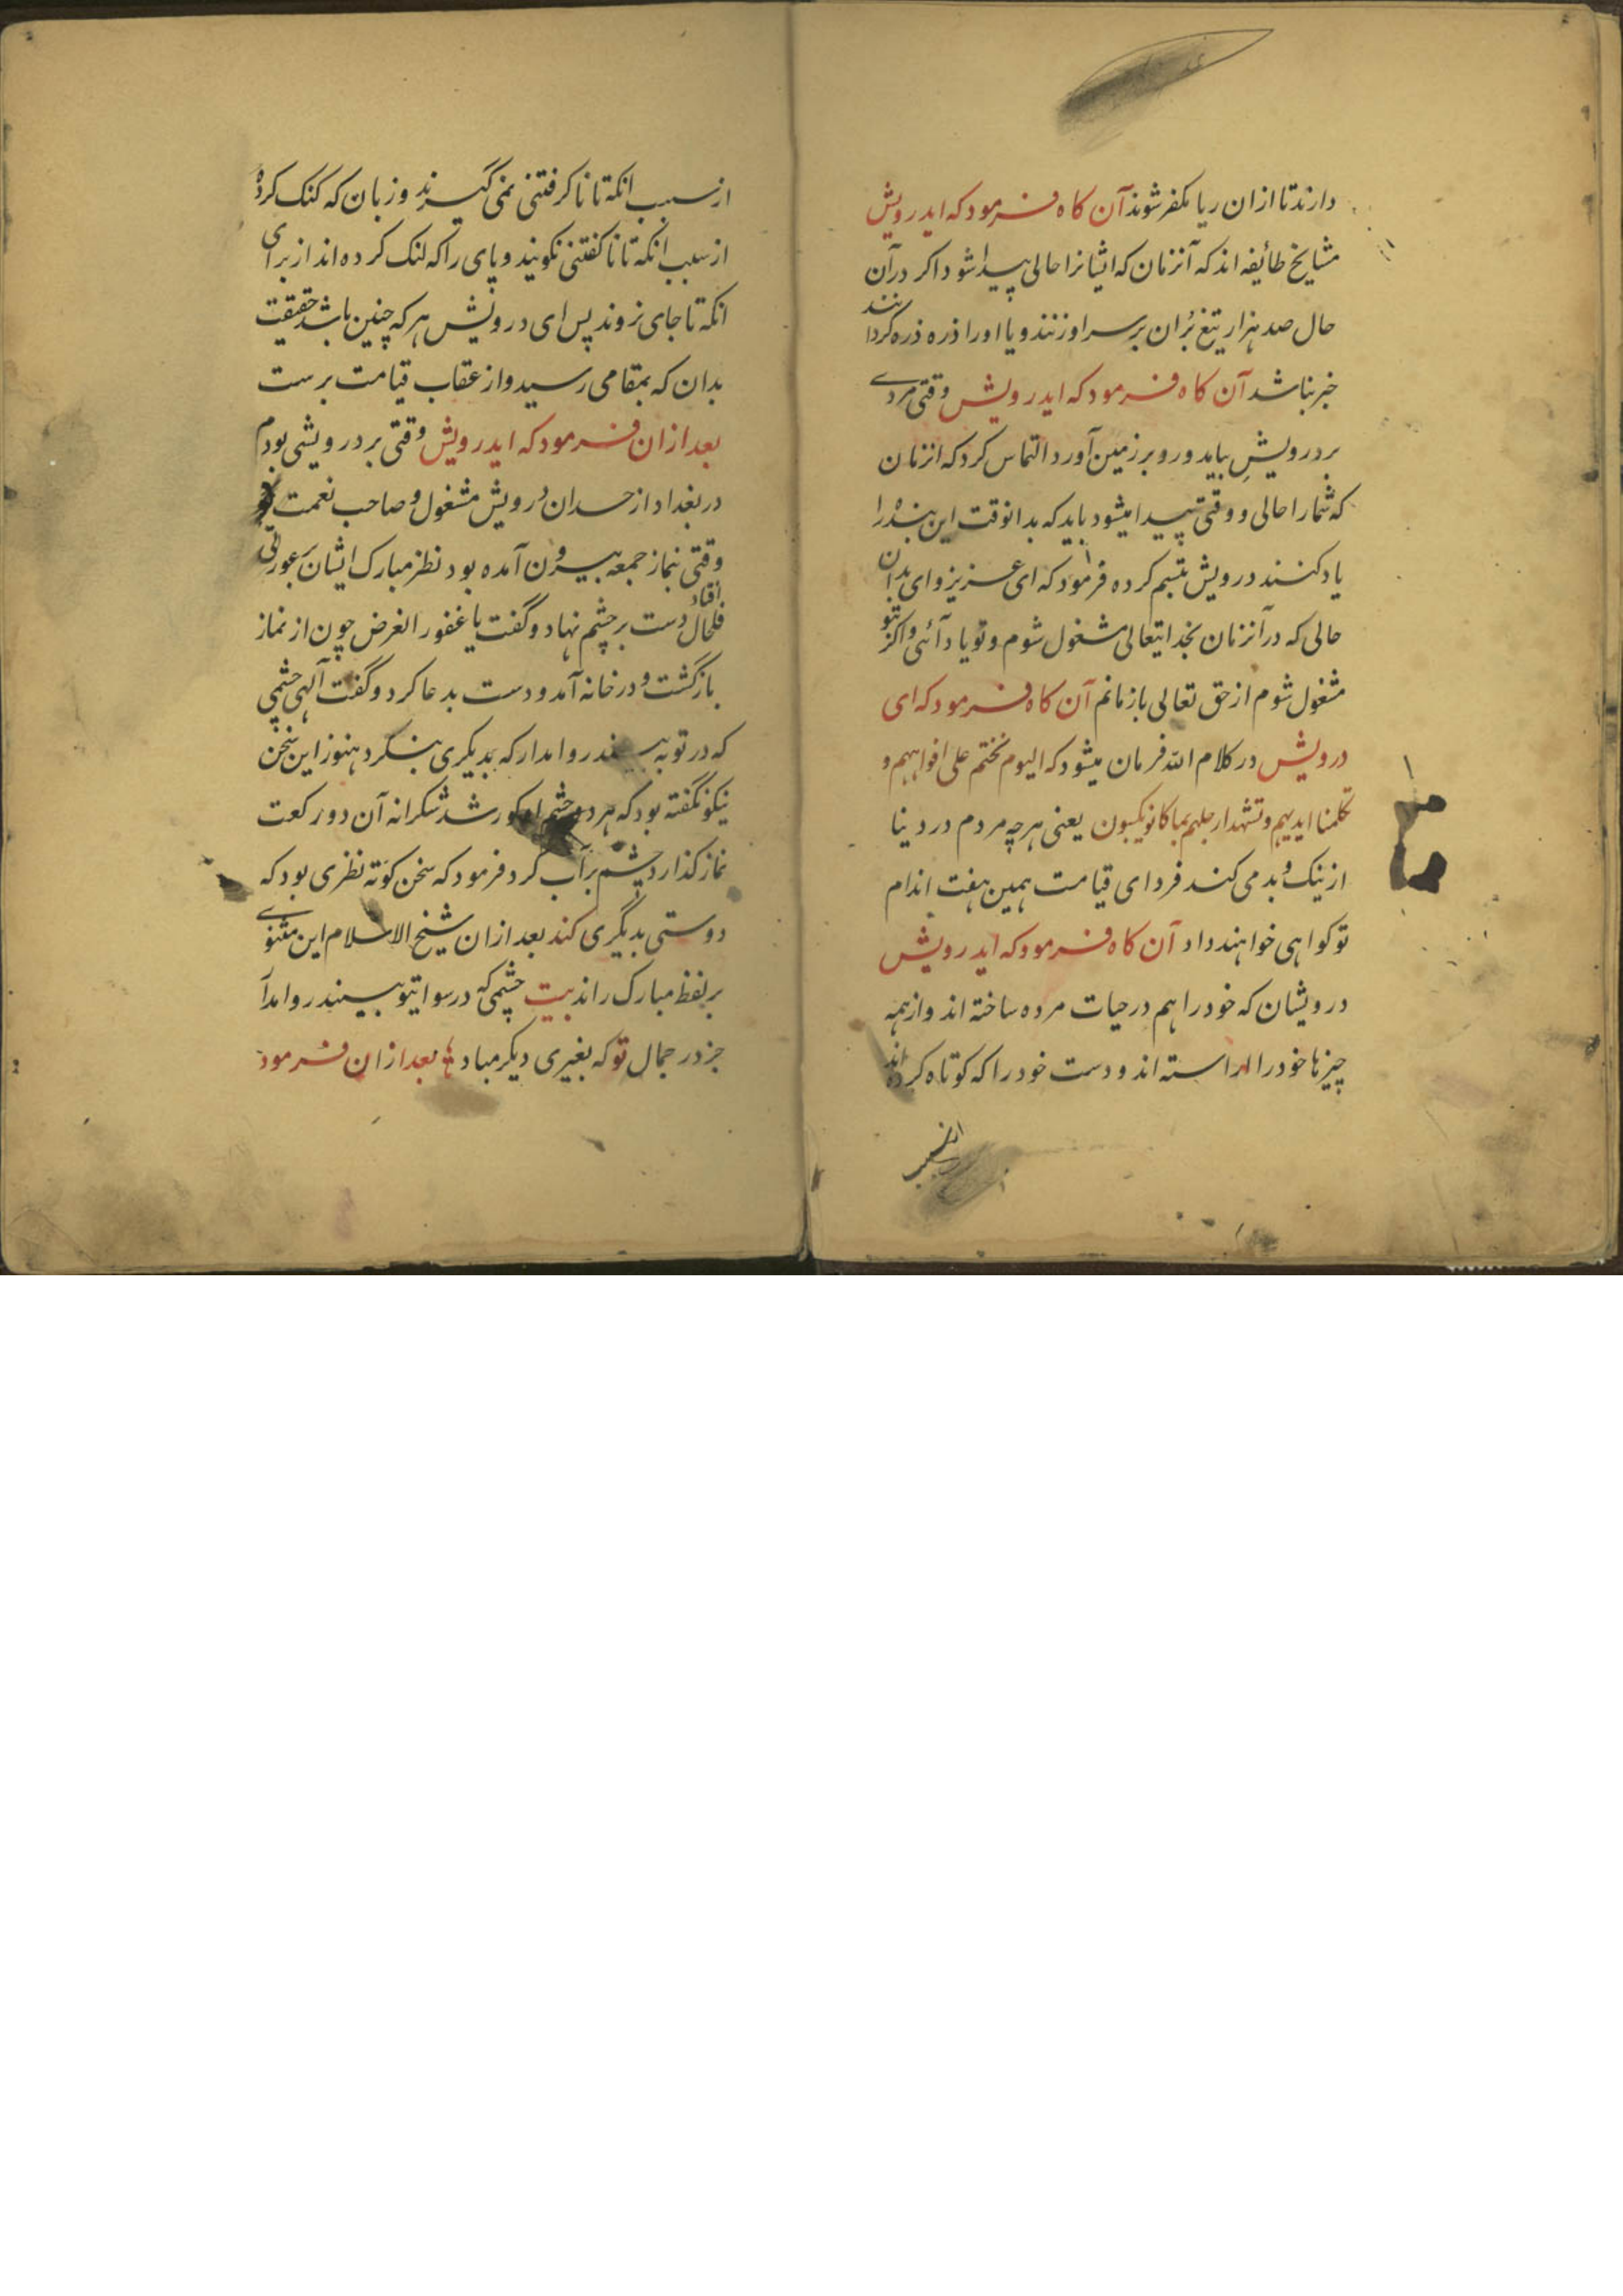 دارند تا ازان ریا مکفر شوند آن کاه فرمود که ایدرویش
مشایخ طائفه اند که آنزمان که ایشانرا حالی پیدا شود اکر درآن
حال صد هزار تیغ بُران بر سر او زنند و یا اورا ذره ذره کردانند
خبر نباشد آن کاه فرمود که ایدرویش وقتی مردے
بر درویشِ بیاید و رو بر زمین آورد التماس کرد که انزمان
که شمارا حالی و وقتی پیدا میشود باید که بدانوقت این بنده را
یاد کنند درویش تبسم کرده فرمود که ای عزیز وای بدان
حالی که درآنزمان بخدایتعالی مشغول شوم و تو یاد آئی و اکر بتو
مشغول شوم از حق تعالی باز مانم آن کاه فرمود که ای
درویش در کلام الله فرمان میشود که الیوم نختم علی افواههم و
تکلمنا ایدیهم و تشهد ارجلهم بما کانو یکسبون یعنی هرچه مردم در دنیا
از نیک و بد می کند فردای قیامت همین هفت اندام
تو کواهی خواهند داد آن کاه فرمود که ایدرویش
درویشان که خودرا هم در حیات مرده ساخته اند و از همه
چیزها خودرا اراسته اند و دست خودرا که کوتاه کرده اند
ازسبب
ازسبب انکه تا ناکرفتنی نمی گیرند و زبان که کنک کرده
ازسبب انکه تا ناکفتنی نکویند و پای راکه لنک کرده اند از برای
انکه تا جای نروند پس ای درویش هر که چنین باشد حقیقت
بدان که بمقامی رسید و از عقاب قیامت برست
بعد ازان فرمود که ایدرویش وقتی بر درویشی بودم
در بغداد از حدان درویش مشغول و صاحب نعمت
وقتی بنماز جمعه بیرون آمده بود نظر مبارک ایشان بعورتی
افتاد فلحال دست بر چشم نهاد و گفت یا غفور الغرض چون از نماز
بازگشت و در خانه آمد و دست بدعا کرد و گفت آلهی چشمی
که در تو به بیند روا مدار که بدیکری بنکرد هنوز این سخن
نیکو نگفته بود که هر دو چشم او کور شد شکرانه آن دو رکعت
نماز کذارد چشم برآب کرد فرمود که سخن کوته نظری بود که
دوستی بدیگری کند بعد ازان شیخ الاسلام این مثنوے
بر لفظ مبارک راند بیت چشمی که در سوا بتو بیند روا مدآ
جز در جمال تو که بغیری دیکر مباد بعد ازان فرمود